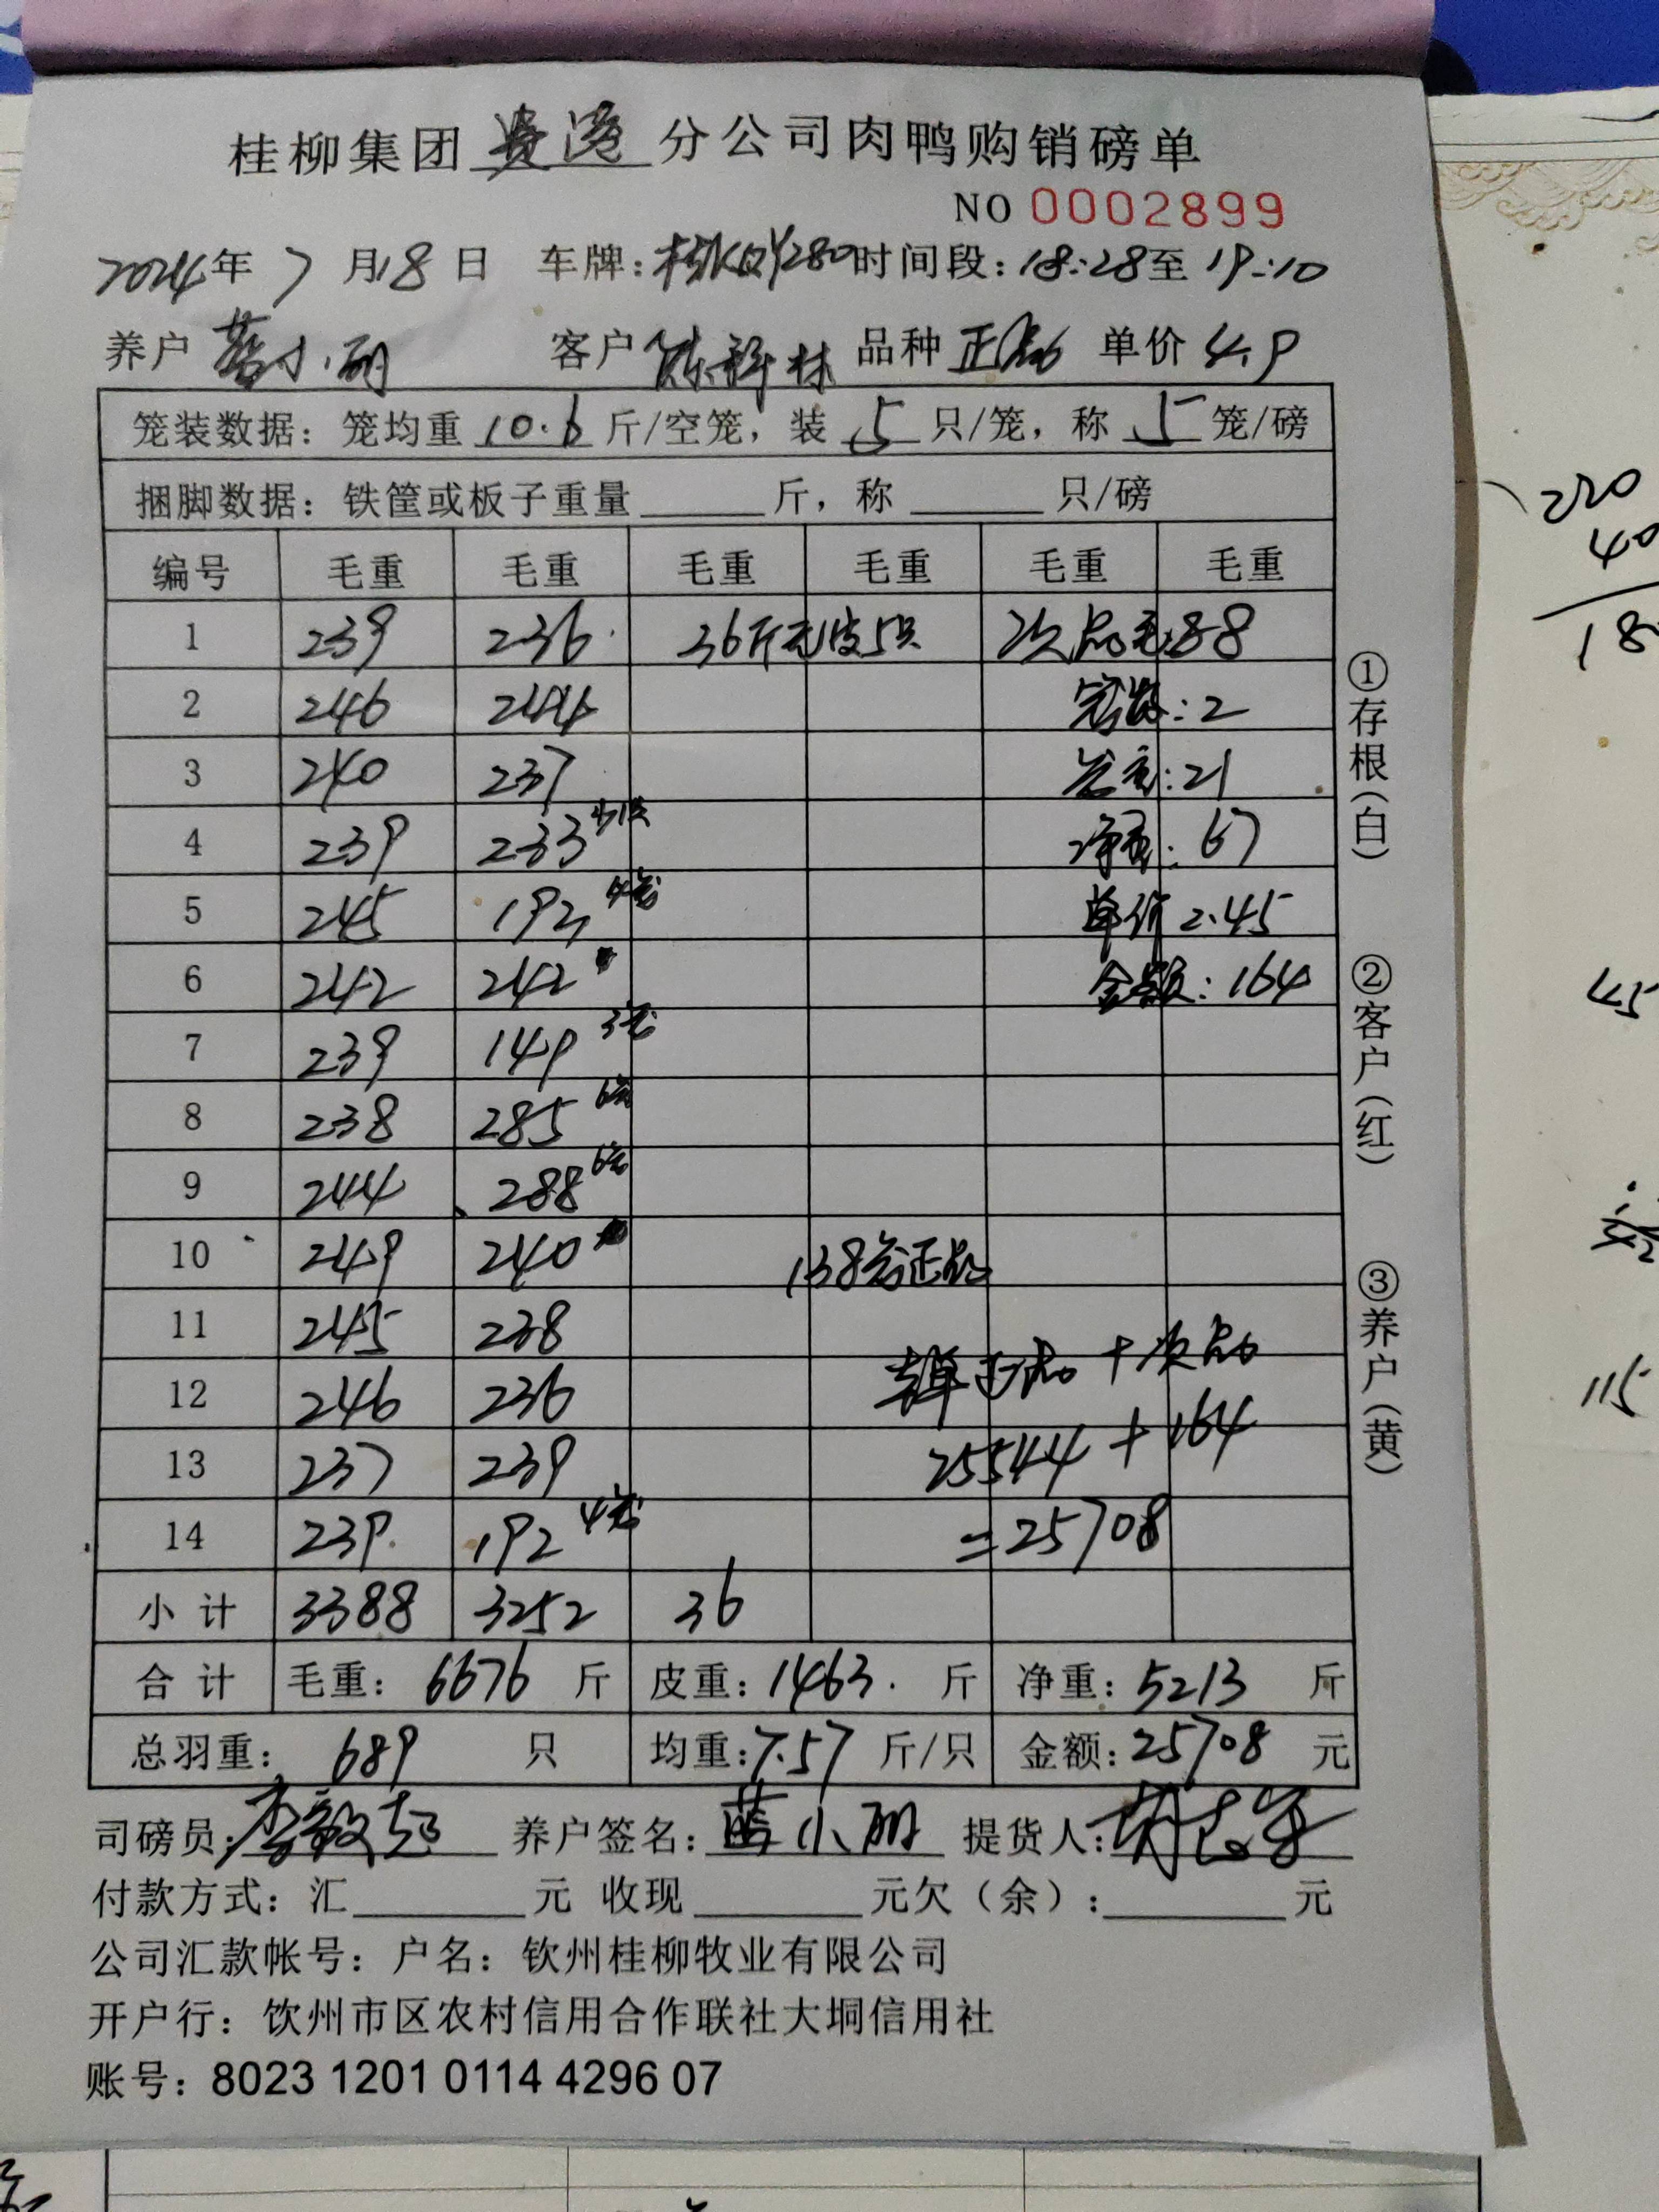 桂柳集团 贵港 分公司肉鸭购销磅单
NO 0002899
2024年 7 月 18 日 车牌: 桂KQY280 时间段: 18:28 至 19:10
养户 蓝小丽 客户 陈祥林 品种 正品 单价 4.9
笼装数据: 笼均重 10.6 斤/空笼, 装 5 只/笼, 称 5 笼/磅
捆脚数据: 铁筐或板子重量 斤, 称 只/磅
编号 毛重 毛重 毛重 毛重 毛重 毛重
1 239 236 36斤毛皮5只 次品毛:88
2 246 244 笼数: 2
3 240 237 笼重: 21
4 239 233 少1只 净重: 67
5 245 192 4笼 单价 2.45
6 242 242 金额: 164
7 239 149 3笼
8 238 285 6笼
9 244 288 6笼
10 249 240 138笼正品
11 245 238
正品+次品
12 246 236
25544+164
13 237 239
14 239 192 4笼 =25708
小 计 3388 3252 36
合 计 毛重: 6676 斤 皮重: 1463 斤 净重: 5213 斤
总羽重: 689 只 均重: 7.57 斤/只 金额: 25708 元
司磅员: 养户签名: 蓝小丽 提货人:
付款方式: 汇 元 收现 元欠(余): 元
公司汇款帐号: 户名: 钦州桂柳牧业有限公司
开户行: 饮州市区农村信用合作联社大垌信用社
账号: 8023 1201 0114 4296 07
①存根(白)
②客户(红)
③养户(黄)
220
40
18
45
115